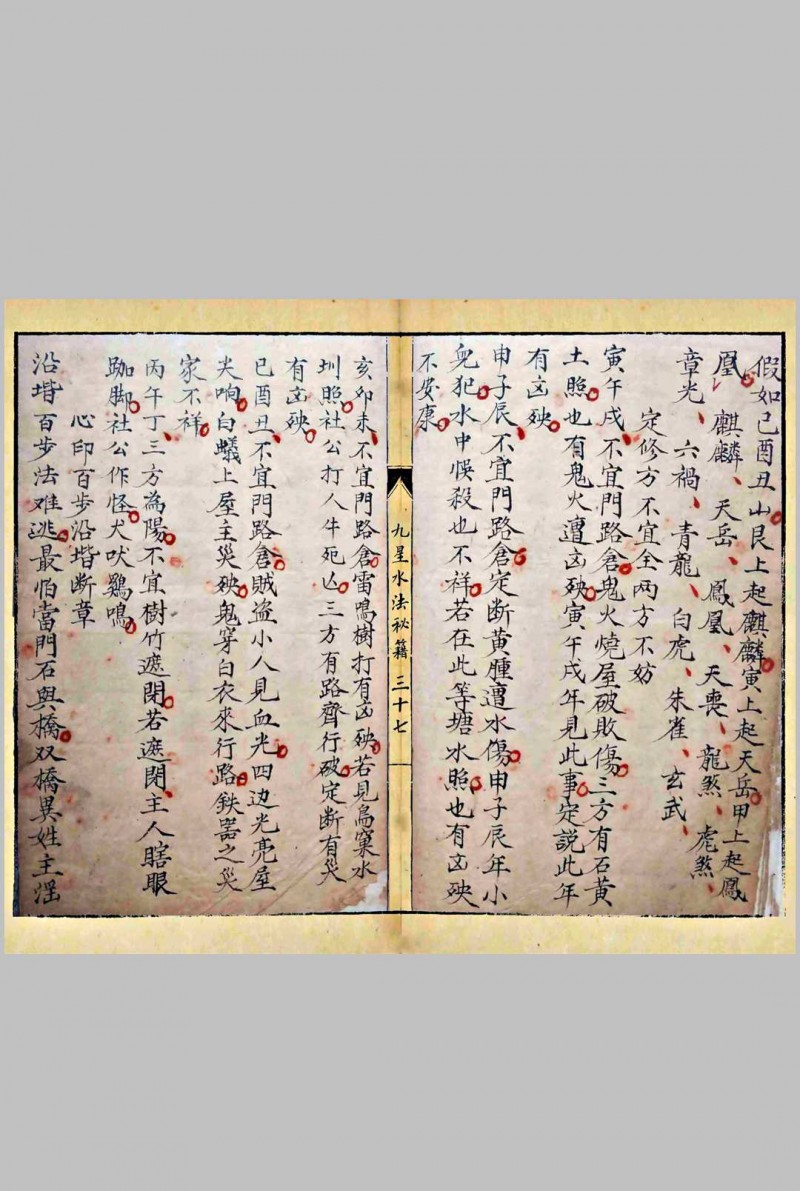 假如己酉丑山艮上起麒麟寅上起天岳甲上起鳳
凰、麒麟、天岳、鳳凰、天喪、龍煞、虎煞、
章光、六禍、青龍、白虎、朱雀、玄武、
定修方不宜全兩方不妨
寅午戌、不宜門路倉鬼火燒屋破敗傷三方有石黃
土照也有鬼火遭凶殃寅午戌年見此事定説此年
有凶殃
申子辰、不宜門路倉定断黃腫遭水傷申子辰年小
兒犯水中悞殺也不祥若在此等塘水照也有凶殃
不安康
九星水法秘籍 三十七
亥卯未、不宜門路倉雷鳴樹打有凶殃若見鳥窠水
圳照社公打人牛死亾三方有路齊行破定断有災
有凶殃
已酉丑、不宜門路倉賊盗小人見血光四边光亮屋
尖响白蟻上屋主災殃鬼穿白衣來行路鉄噐之災
家不祥
丙午丁、三方為陽不宜樹竹遮閉若遮閉主人瞎眼
跏脚社公作怪犬吠鷄鳴
心印百步沿堦断章
沿堦百步法难逃最怕當門石與橋双橋異姓主滛